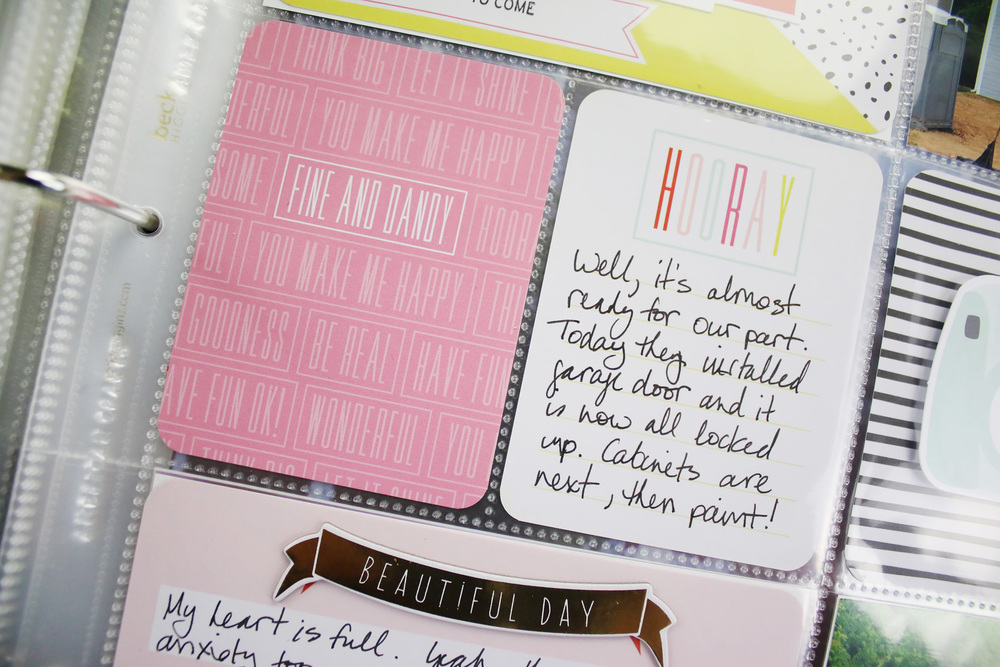 TO COME
THINK BIG LET IT SHINE
YOU MAKE ME HAPPY
FINE AND DANDY
YOU MAKE ME HAPPY
GOODNESS BE REAL HAVE FUN
HAVE FUN OK! WONDERFUL YOU
THINK BIG LET IT SHINE
HOORAY
Well, it's almost
ready for our part.
Today they installed
garage door and it
is now all locked
up. Cabinets are
next, then paint!
BEAUTIFUL DAY
My heart is full. Yeah, th
anxiety